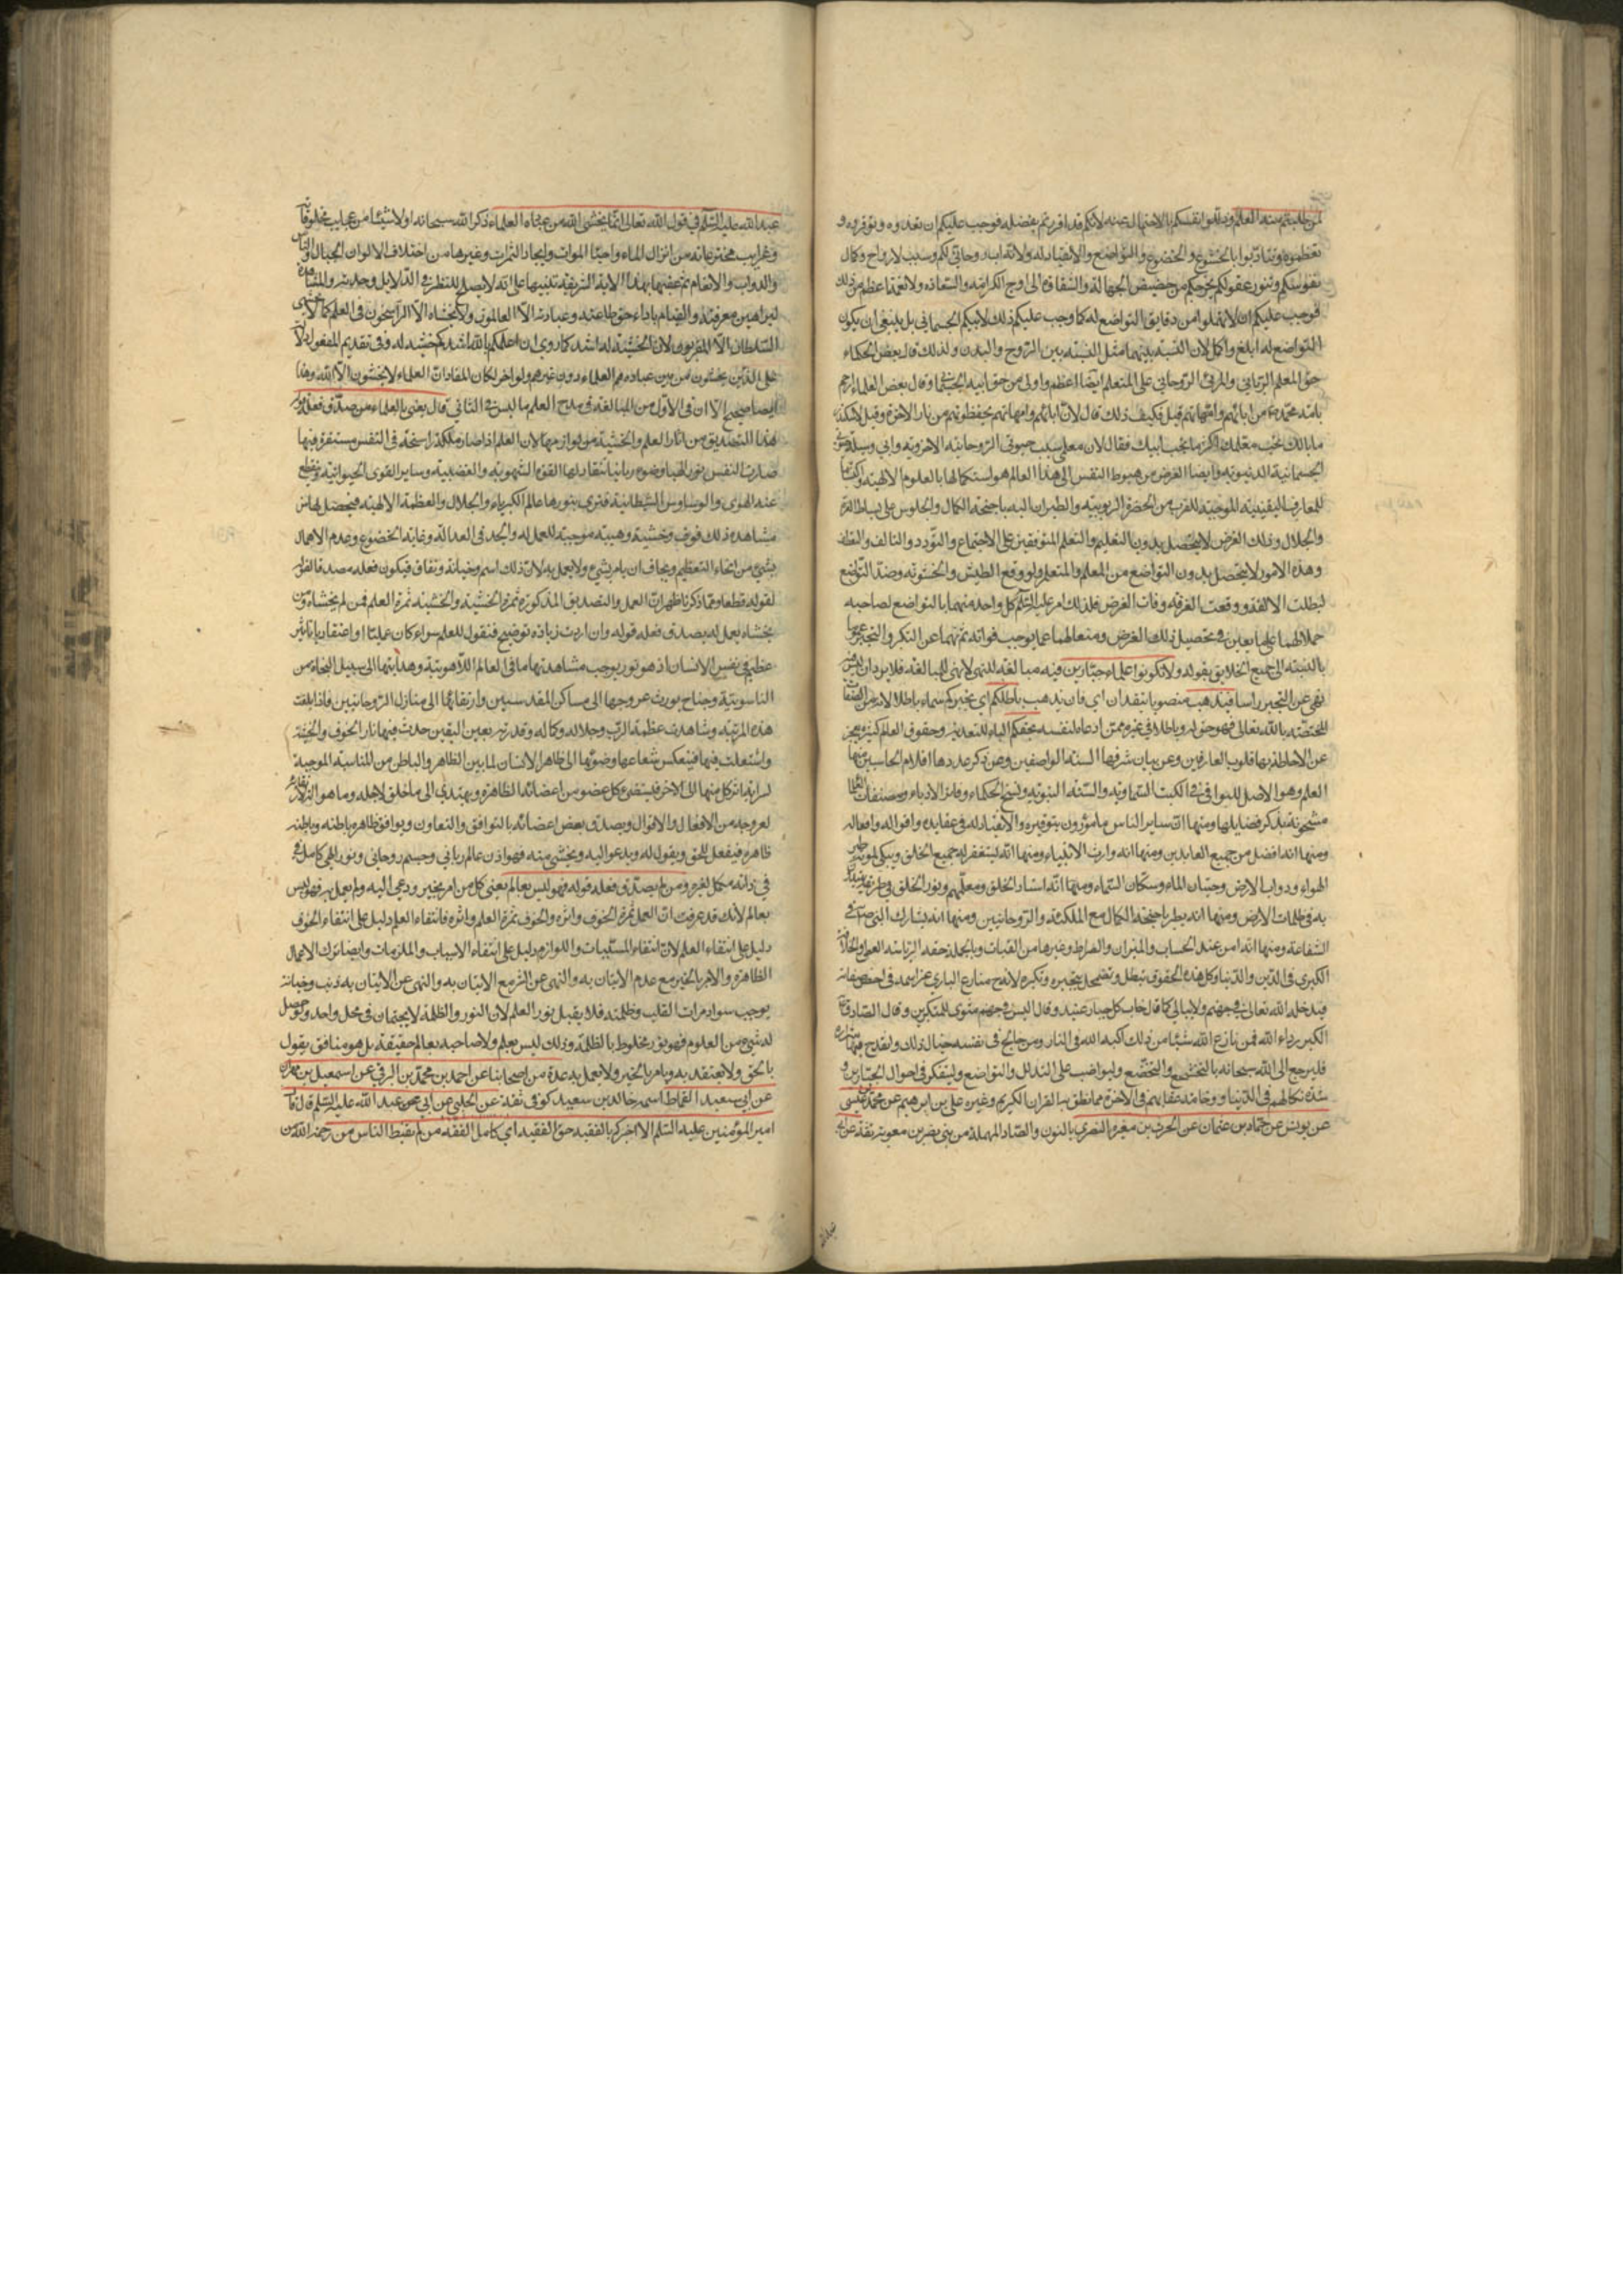 لمن طلبتم منه العلم وذللوا انفسكم بالاحتمال عنه لانكم قد اقررتم بفضله فوجب عليكم ان تعدوه وتوقروه و
تعظموه وتتادبوا بالخشوع والخضوع والتواضع والانقياد له ولانه اب روحاني لكم وسبب لارواح وكمال
نفوسكم وتنور عقولكم يخرجكم من حضيض الجهالة والشقاوة الى اوج الكرامة والسعادة ولا نعمة اعظم من ذلك
فوجب عليكم ان لا تغفلوا من دقايق التواضع له كما وجب عليكم ذلك لابيكم الجسماني بل ينبغي ان يكون
التواضع له ابلغ واكمل لان النسبة بينهما مثل النسبة بين الروح والبدن ولذلك قال بعض الحكماء
حق المعلم الرباني والمربي الروحاني على المتعلم ايضا اعظم واولى من حق ابيه الجسماني وقال بعض العلماء ارحم
بامة محمد من ابائهم وامهاتهم قيل وكيف ذلك قال لان ابائهم وامهاتهم يحفظونهم من نار الدنيا
ما بالك تحب معلمك اكثر مما تحب ابيك فقال لان معلمي سبب حيوتي الروحانية الاخروية وابي وسيلة
الجسمانية الدنيوية وايضا الغرض من هبوط النفس الى هذا العالم هو استكمالها بالعلوم الالهية
للمعارف اليقينية الموجبة للقرب من الحضرة الربوبية والطيران اليه باجنحة الكمال والجلوس على بساط
والجلال وذلك الغرض لا يحصل بدون التعليم والتعلم المتوقفين على الاجتماع والتودد والتالف والتعطف
وهذه الامور لا يتحصل بدون التواضع من المعلم والمتعلم ولو وقع الطيش والخشونة وضد التواضع
لبطلت الالفة ووقعت الفرقة وفات الغرض فلذلك امر عليه السلام كل واحد منهما بالتواضع لصاحبه
حملا لهما على ما يعين في تحصيل ذلك الغرض ومنعا لهما عما يوجب فواته ثم نهيهما عن التكبر والتجبر
بالنسبة الى جميع الخلايق بقوله ولا تكونوا علماء جبارين فيه مبالغة للنهي لا نهي للمبالغة فلا يرد ان
نهى عن التجبر راسا فيذهب منصوب بتقدير ان اي فان يذهب باطلكم اي تجبركم سماه باطلا لانه من الصفات
المختصة بالله تعالى فهو حق له وباطل في غيره ممن ادعاه لنفسه بحقكم الباء للتعدية وحقوق العالم كثيرة يعجز
عن الاحاطة بها قلوب العارفين وعن بيان شرفها السنة الواصفين وعن ذكر عددها اقلام الحاسبين منها
العلم وهو الاصل للبواقي ففي الكتب السماوية والسنة النبوية ونسخ الحكماء ودفاتر الادباء ومصنفات
مشحونة بذكر فضايلها ومنها ان ساير الناس مامورون بتوقيره والانقياد له في عقايده واقواله وافعاله
ومنها انه افضل من جميع العابدين ومنها انه وارث الانبياء ومنها انه يستغفر له جميع الخلق ويبكي لموته طير
الهواء ودواب الارض وحيتان الماء وسكان السماء ومنها انه استاد الخلق ومعلمهم ونور الخلق في طريقهم
به في ظلمات الارض ومنها انه يطير باجنحة الكمال مع الملئكة والروحانيين ومنها انه يشارك النبي ص في
الشفاعة ومنها انه امن عند الحساب والميزان والصراط وغيرها من العقبات وبالجملة حقه الرياسة العظمى والخلافة
الكبرى في الدين والدنيا وكل هذه الحقوق يبطل ويضمحل بتجبره وتكبره لانه ح منازع الباري عز اسمه في اخص صفاته
فيدخله الله تعالى في جهنم ولا يبالي كما قال خاب كل جبار عنيد وقال اليس في جهنم مثوى للمتكبرين وقال الصادق ع
الكبر رداء الله فمن نازع الله شيئا من ذلك اكبه الله في النار ومن خالج في نفسه خيال ذلك
فليرجع الى الله سبحانه بالتخشع والتخضع وليواظب على التذلل والتواضع وليتفكر في احوال الجبارين و
شدة نكالهم في الدنيا ووخامة عقابهم في الاخرة مما نطق به القران الكريم وغيره علي بن ابراهيم عن محمد بن عيسى
عن يونس عن حماد بن عثمان عن الحرث بن مغيرة النصري بالنون والصاد المهملة من بني نصر بن معوية ثقة عن ابي
عبد الله عليه السلام في قول الله تعالى انما يخشى الله من عباده العلماء ذكر الله سبحانه اولا شيئا من عجايب مخلوقاته
وغرايب مخترعاته من انزال الماء واحياء الموات وايجاد الثمرات وغيرها من اختلاف الالوان الجبال والناس
والدواب والانعام ثم عقبها بهذا الاية الشريفة تنبيها على انه لا يصلح للنظر في الدلايل
لبراهين معرفته والقيام باداء حق طاعته وعبادته الا العالمون ولا يخشاه الا الراسخون في العلم كما لا يخشى
السلطان الا المقربون لان الخشية له اشد كما روي ان اعلمكم بالله اشدكم خشية له وفي تقديم المفعول دلالة
على الذين يخشون من بين عباده هم العلماء دون غيرهم ولو اخر لكان المفاد ان العلماء لا يخشون الا الله وهذا
ايضا صحيح الا ان في الاول من المبالغة في مدح العلم ما ليس في الثاني قال يعني بالعلماء من صدق فعله قوله
هذا التصديق من اثار العلم والخشية من لوازمها لان العلم اذا صار ملكة راسخة في النفس مستقرة فيها
صارت النفس نورا الهيا وضوء ربانيا تنقاد لها القوة الشهوية والغضبية وساير القوى الحيوانية وينقطع
عنه الهوى والوساوس الشيطانية فترى بنورها عالم الكبرياء والجلال والعظمة الالهية فيحصل لها من
مشاهدة ذلك خوف وخشية وهيبة موجبة للعمل له والجد في العبادة وغاية الخضوع وعدم الاهمال
بشيء من انحاء التعظيم ويخاف ان يامر بشيء ولا يعمل به لان ذلك اسم وخيانة ونفاق فيكون فعله مصدقا لقوله
لقوله قطعا ومما ذكرنا ظهر ان العمل والتصديق المذكورة ثمرة الخشية والخشية ثمرة العلم فمن لم يخشاه ومن
يخشاه يعمل له يصدق فعله قوله وان اردت زيادة توضيح فنقول للعلم سواء كان عمليا او اعتقاديا تاثير
عظيم في نفس الانسان اذ هو نور يوجب مشاهدتها ما في العالم اللاهوتية وهدايتها الى سبيل النجاة من
الناسوتية وجناح يورث عروجها الى مساكن المقدسيين وارتقائها الى منازل الروحانيين فاذا بلغت
هذه المرتبة وشاهدت عظمة الرب وجلاله وكماله وقدرته بعين اليقين حدث فيها نار الخوف والخشية
واشتعلت فيها فينعكس شعاعها وضوئها الى ظاهر الانسان لما بين الظاهر والباطن من المناسبة الموجبة
لسراية اثر كل منهما الى الاخر فيستضيء كل عضو من اعضائه الظاهرة ويهتدي الى ما خلق لاجله وما هو
لعروجه من الافعال والاقوال ويصدق بعض اعضائه بالتوافق والتعاون ويوافق ظاهره باطنه وباطنه
ظاهره فيفعل للحق ويقول له ويدعو اليه ويخشى منه فهو اذن عالم رباني وجسم روحاني ونور الهي كامل
في ذاته مكمل لغيره ومن لم يصدق فعله قوله فهو ليس بعالم يعني كل من امر بخير ودعي اليه ولم يعمل به فهو ليس
بعالم لانك قد عرفت ان العمل ثمرة الخوف واثره والخوف ثمرة العلم واثره فانتفاء العلم دليل على انتفاء الخوف
دليل على انتفاء العلم لان انتفاء المسببات واللوازم دليل على انتفاء الاسباب والملزومات وايضا ترك الاعمال
الظاهرة والامر بالخير مع عدم الاتيان به والنهي عن الشر مع الاتيان به والنهي عن الاتيان به ذنب وخيانة
يوجب سواد مرات القلب وظلمته فلا يقبل نور العلم لان النور والظلمة لا يجتمعان في محل واحد ولو حصل
له شيء من العلوم فهو نور مخلوط بالظلمة وذلك ليس بعلم ولا صاحبه بعالم حقيقة بل هو منافق يقول
بالحق ولا يعتقد به ويامر بالخير ولا يعمل به عدة من اصحابنا عن احمد بن محمد بن البرقي عن اسمعيل بن مهران
عن ابي سعيد القماط اسمه خالد بن سعيد كوفي ثقة عن الحلبي عن ابي عبد الله عليه السلم قال قال
امير المؤمنين عليه السلم الا اخبركم بالفقيه حق الفقيه اي كامل الفقه من لم يقنط الناس من رحمة الله من